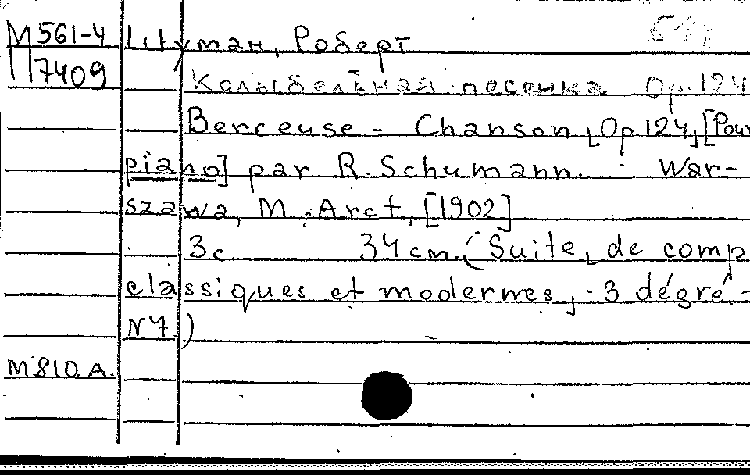 М 561-4 Шуман, Роберт
7409
Колыбельная песенка Op. 124
Berceuse - Chanson, Op 124, [Pour
piano] par R. Schumann. : War-
szawa, M. Arct, [1902]
3с 34 cm. (Suite, de comp
classiques et modernes, - 3 dégré -
N 7.)
М 810 А.